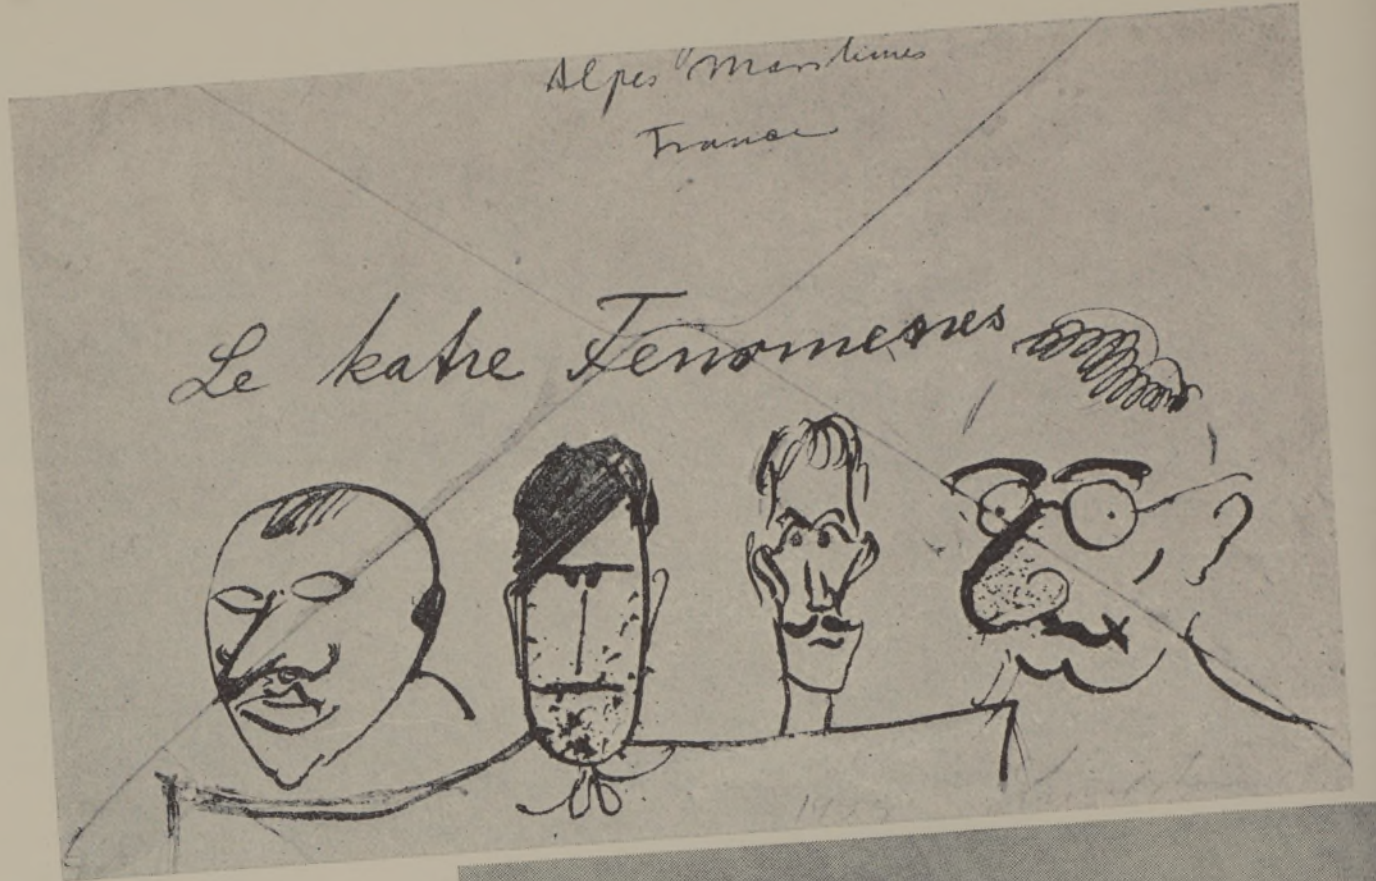 Alpes Maritimes
France
Le katre Fenomenes